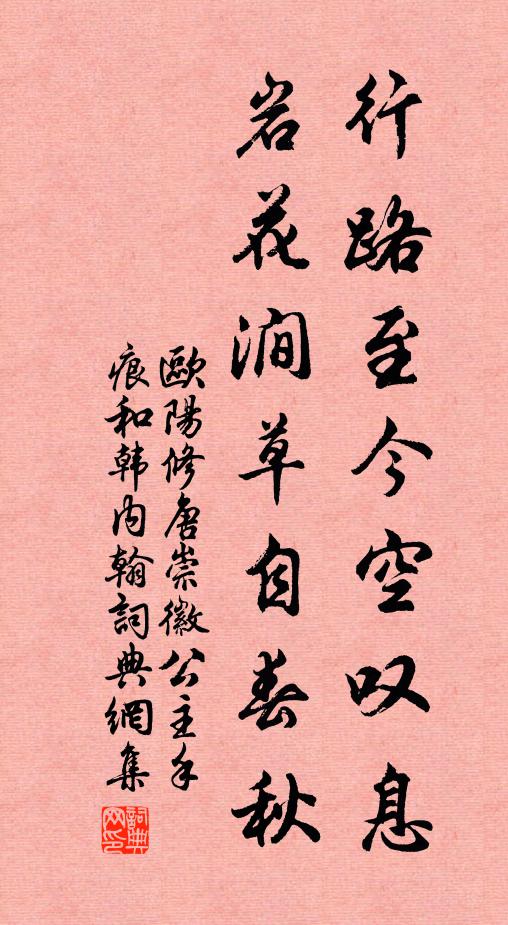 行路至今空叹息
岩花涧草自春秋
歐陽修唐崇徽公主手
痕和韩内翰詞典網集
詞典网印